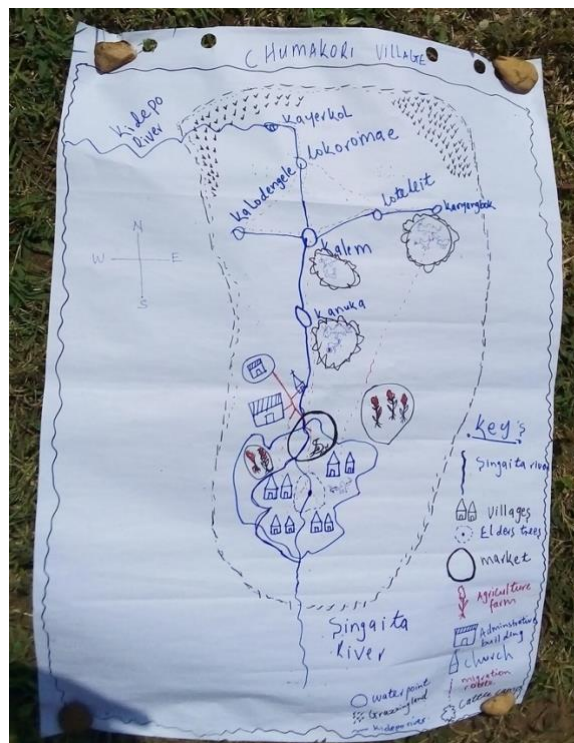 CHUMAKORI VILLAGE
Kidepo
River
Kayerkol
Lokoromae
Kalodengele
Loteleit
N
W E
S
Kalem
Kanuka
key's
Singaita river
Villages
Elders trees
market
Agriculture
farm
Administrative
building
church
migration
route
Singaita
River
waterpoint
Grazing land
Kidepo river